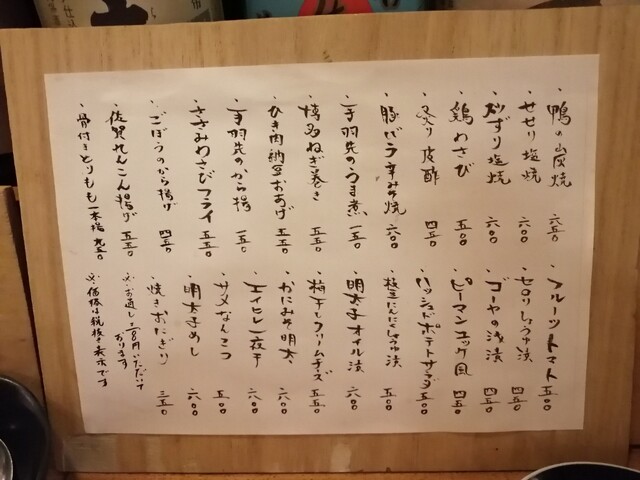 ・鴨の炭焼 六五〇
・せせり塩焼 六〇〇
・砂ずり塩焼 六〇〇
・鶏わさび 五五〇
・炙り皮酢 四五〇
・豚バラ辛みそ焼 六〇〇
・手羽先のうま煮 一五〇
・博多ねぎ巻き 五五〇
・ひき肉納豆おあげ 五五〇
・手羽先のから揚 一五〇
・ささみわさびフライ 五五〇
・ごぼうのから揚げ 四五〇
・佐賀れんこん揚げ 五五〇
・骨付きとりもも一本揚 九五〇
・フルーツトマト 五〇〇
・セロリしょうゆ漬 四五〇
・ゴーヤの浅漬 四五〇
・ピーマンユッケ風 四五〇
・ハッシュドポテトサラダ 五五〇
・枝豆にんにくしょうゆ漬 五〇〇
・明太子オイル漬 六〇〇
・梅干しクリームチーズ 五五〇
・かにみそ明太 六〇〇
・エイヒレ一夜干 六〇〇
・サメなんこつ 五〇〇
・明太子めし 六〇〇
・焼きおにぎり 三五〇
※お通し三〇〇円いただいて
おります
※価格は税抜き表示です